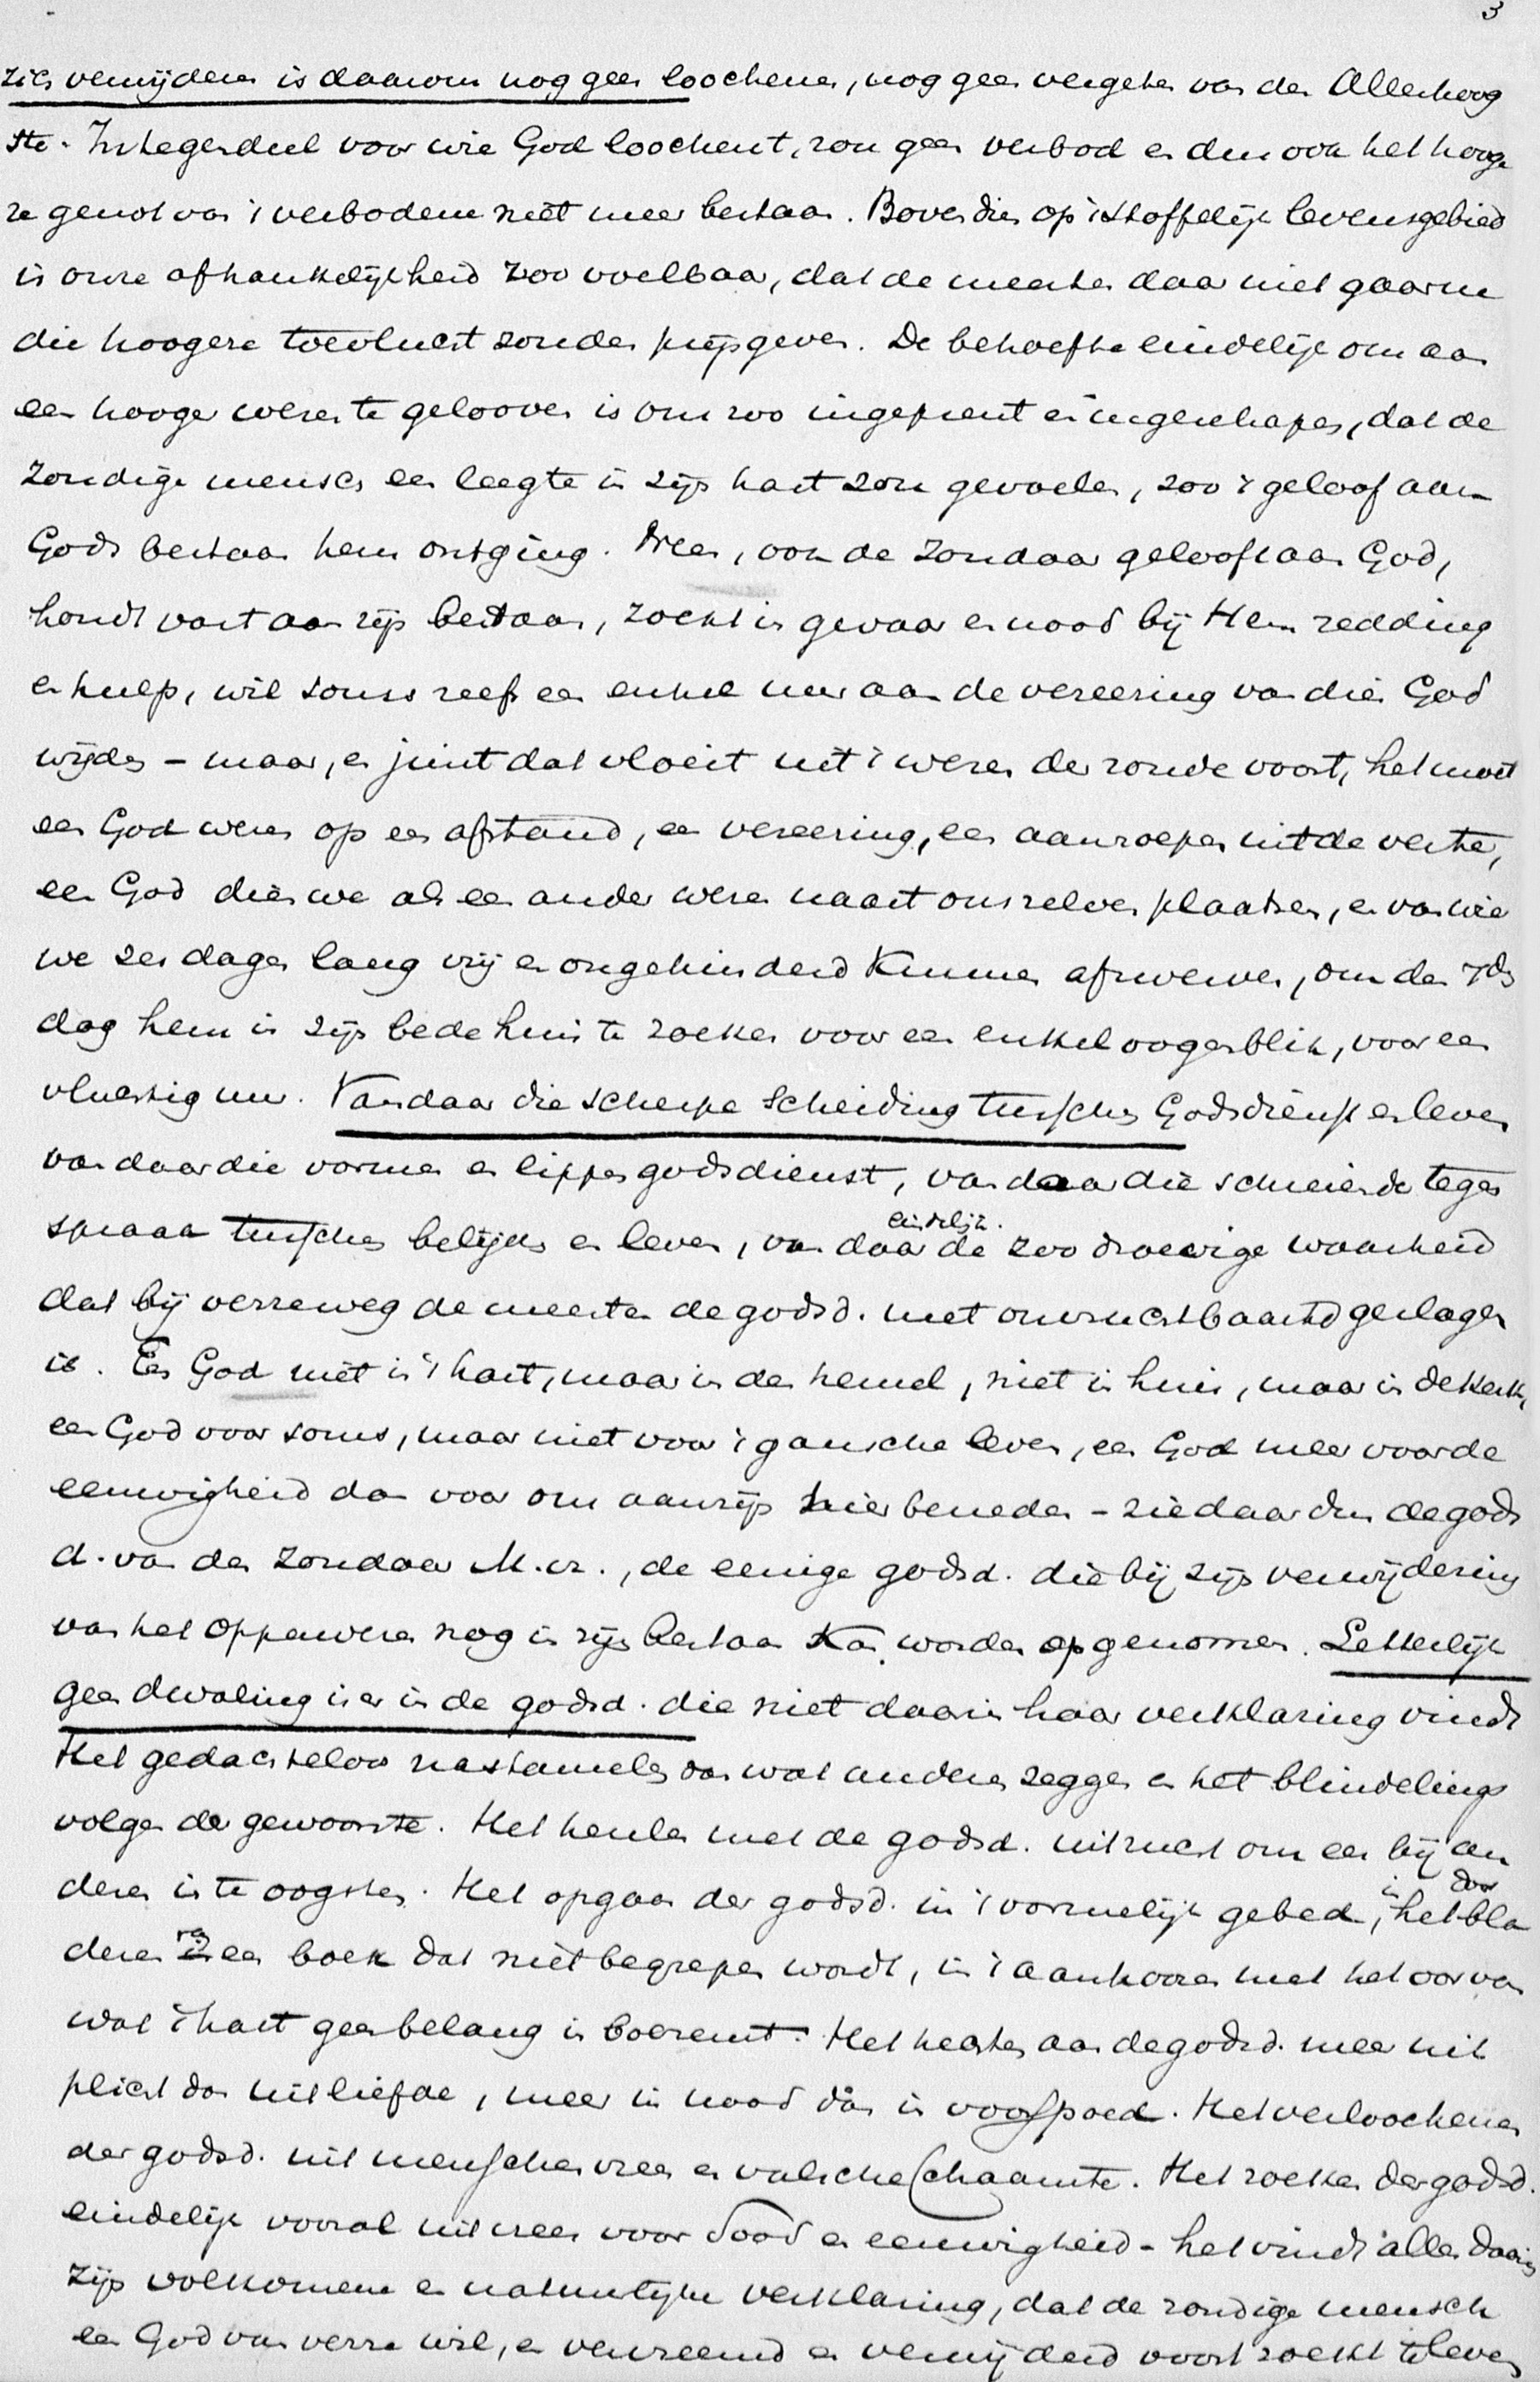 3
zich verwijderen is daarom nog geen loochenen, nog geen vergeten van den Allerhoog
ste. Integendeel voor wie God loochent, zou geen verbod en dus ook het hoog
ze genot van 't verbodene niet meer bestaan. Bovendien op 't stoffelijk levensgebied
is onze afhankelijkheid zoo voelbaar, dat de meesten daar niet gaarne
die hoogere toevlucht zouden prijsgeven. De behoefte eindelijk om aan
een hooger wezen te gelooven is ons zoo ingeprent en ingeschapen, dat de
zondige mensch een leegte in zijn hart zou gevoelen, zoo 't geloof aan
Gods bestaan hem ontging. Neen, ook de zondaar gelooft aan God,
houdt vast aan zijn bestaan, zoekt in gevaar en nood bij Hem redding
en hulp, wil soms zelfs een enkel uur aan de vereering van dien God
wijden – maar, en juist dat vloeit uit 't wezen der zonde voort, het moet
een God wezen op een afstand, een vereering, een aanroepen uit de verte,
een God dien we als een ander wezen naast onszelven plaatsen, en van wien
we zes dagen lang vrij en ongehinderd kunnen afzwerven, om den 7den
dag hem in zijn bedehuis te zoeken voor een enkel oogenblik, voor een
vluchtig uur. Vandaar die scherpe scheiding tusschen Godsdienst en leven
van daar die vormen en lippengodsdienst, van daar die schreiende tegen
spraak tusschen belijden en leven, van daar eindelijk de zoo droevige waarheid
dat bij verreweg de meesten de godsd. met onvruchtbaarheid geslagen
is. Een God niet in 't hart, maar in den hemel, niet in huis, maar in de kerk,
een God voor soms, maar niet voor 't gansche leven, een God meer voor de
eeuwigheid dan voor ons aanzijn hier beneden – ziedaar dus de gods
d. van den zondaar M.Z., de eenige godsd. die bij zijn verwijdering
van het Opperwezen nog in zijn bestaan kan worden opgenomen. Letterlijk
geen dwaling is er in de godsd. die niet daarin haar verklaring vindt
Het gedachteloos nastamelen van wat anderen zeggen en het blindelings
volgen der gewoonte. Het heulen met de godsd. uitzucht om eer bij an
deren in te oogsten. Het opgaan der godsd. in 't vormelijk gebed, in het door bla
deren van een boek dat niet begrepen wordt, in 't aanhooren met het oor van
wat 't hart geen belang in boezemt. Het hechten aan de godsd. meer uit
plicht dan uit liefde, meer in nood dan in voorspoed. Het verloochenen
der godsd. uit menschenvrees en valsche schaamte. Het zoeken der godsd.
eindelijk vooral uit vrees voor dood en eeuwigheid – het vindt alles daarin
zijn volkomene en natuurlijke verklaring, dat de zondige mensch
een God van verre wil, en vervreemd en verwijderd voort zoekt te leven